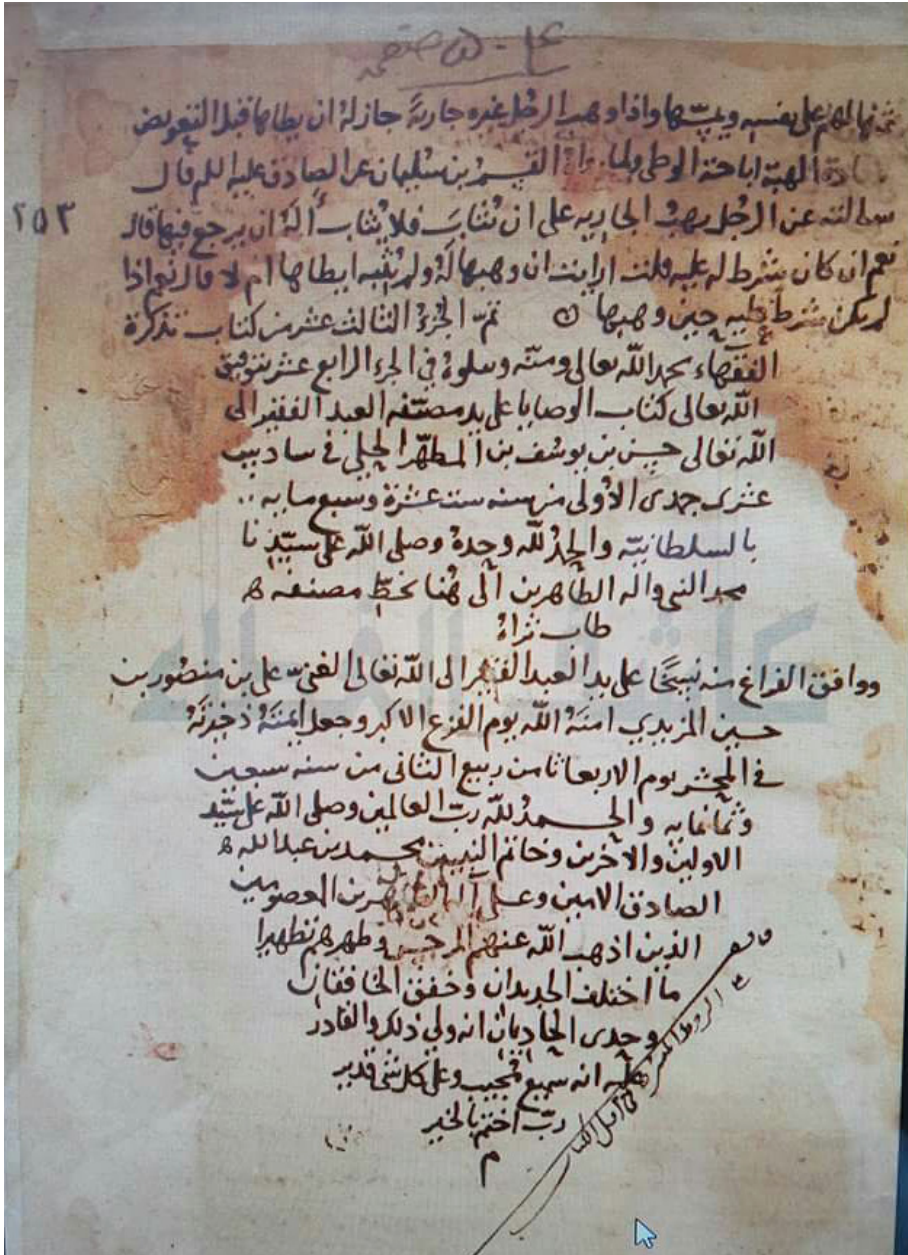 ثمنها لهم على نفسه ويمسّها واذا وهب الرجل غيره جارية جاز له ان يطاها قبل التعويض
الهبة اباحة الوطى ولما رواه القسم بن سليمان عن الصادق عليه السلم قال
سالته عن الرجل يهب الجاريه على ان تثاب فلا يثاب أله ان يرجع فيها قال
نعم ان كان شرط له عليه قلت ارايت ان وهبها له ولم يثبه ايطاها ام لا قال نعم اذا
لم يكن شرط عليه حين وهبها ن تمّ الجزء الثالث عشر من كتاب تذكرة
الفقهاء بحمد الله تعالى ومنّه ويتلوه في الجزء الرابع عشر بتوفيق
الله تعالى كتاب الوصايا على يد مصنّفه العبد الفقير الى
الله تعالى حسن بن يوسف بن المطهّر الحلي في سادس
عشرى جمدى الاولى من سنه ست عشرة وسبع مايه ..
بالسلطانيّه والحمد لله وحده وصلى الله على سيّدنا
محمد النبي واله الطاهرين الى هُنا بخطّ مصنفه ه
طاب ثراهُ
ووافق الفراغ منه نسخًا على يد العبد الفقير الى الله تعالى الغنى علي بن منصور بن
حسين المزيدي امنه الله يوم الفزع الاكبر وجعل ايمته ذخيرته
في المحشر يوم الاربعا ثامن ربيع الثانى من سنه سبعين
وثمانمايه والحمد لله ربّ العالمين وصلى الله على سيّد
الاولين والاخرين وخاتم النبيين محمد بن عبد الله ه
الصادق الامين وعلى آله الطاهرين المعصومين
الذين اذهب الله عنهم الرجس وطهرهم تطهيرا
ما اختلف الجديدان وخفق الخافقان
وحدى الحاديان انه ولي ذلك والقادر
عليه انه سميع مجيب وعلى كل شى قدير
ربّ اختم بالخير
م
٢٥٣
صفحه